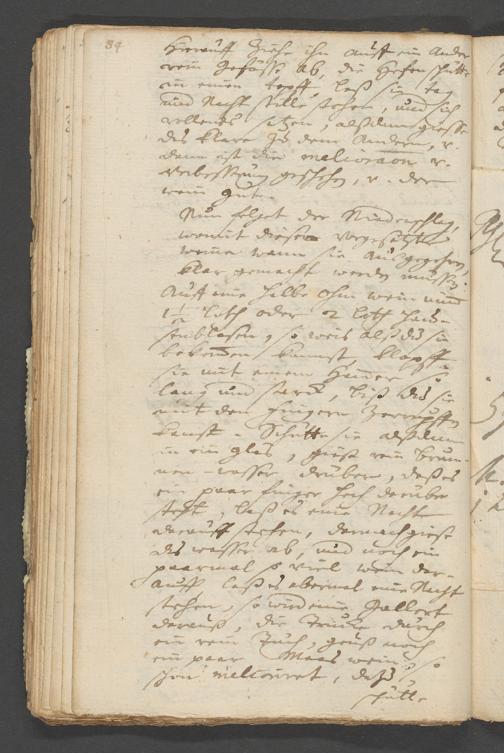 84
Hierauff ziehe ihn auff ein ander
rein gefässe ab, die Hefen schütte
in einen topff, laß sie tag
und Nacht stille stehen, und sich
vollends setzen, alßdann giesse
das klare zu dem Andern, v.
dann ist die melioration v.
verbesserung geschehen, v. der
wein gut.
Nun folget der Niederschlag,
womit diese vorgesetzte
weine wann sie ausgegohren,
klar gemacht werden müssen.
Auff eine halbe Ohm wein nimb
1½ loth oder 2 loth Hau-
senblasen, so weis alß du sie
bekommen kanst, klopffe
sie mit einem Hammer so
lang und starck, biß du sie
mit den fingern zerrupffen
kanst. Schütte sie alßdann
in ein glas, gieß rein brun-
nen-wasser drüber, daß es
ein paar finger hoch darüber
steht, laß es eine Nacht
darauff stehen, darnach giesse
das wasser ab, und noch ein
paarmal so viel wein dar-
auff laß es abermal eine Nacht
stehen, so wird eine Gallert
darauß, die drücke durch
ein rein Tuch, gieß noch
ein paar Maas wein, so
schon meliorirt, dazu,
schütt-